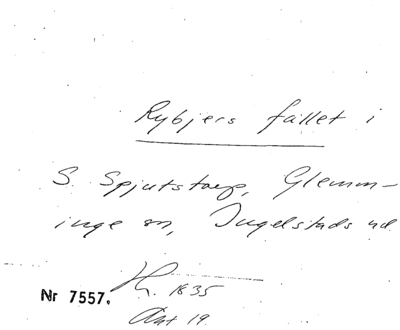 Rybjers fället i
S. Spjutstorp, Glemm-
inge sn, Ingelstads hd
Nr 7557.
h. 1835
Akt 19.